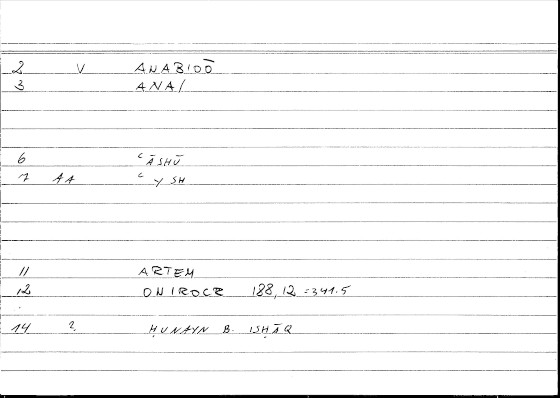 2 V ANABIOŌ
3 ANA/
6 ʿĀSHŪ
7 AA ʿYSH
11 ARTEM
12 ONIROCR 188,12 = 341.5
14 ? ḤUNAYN B. ISḤĀQ